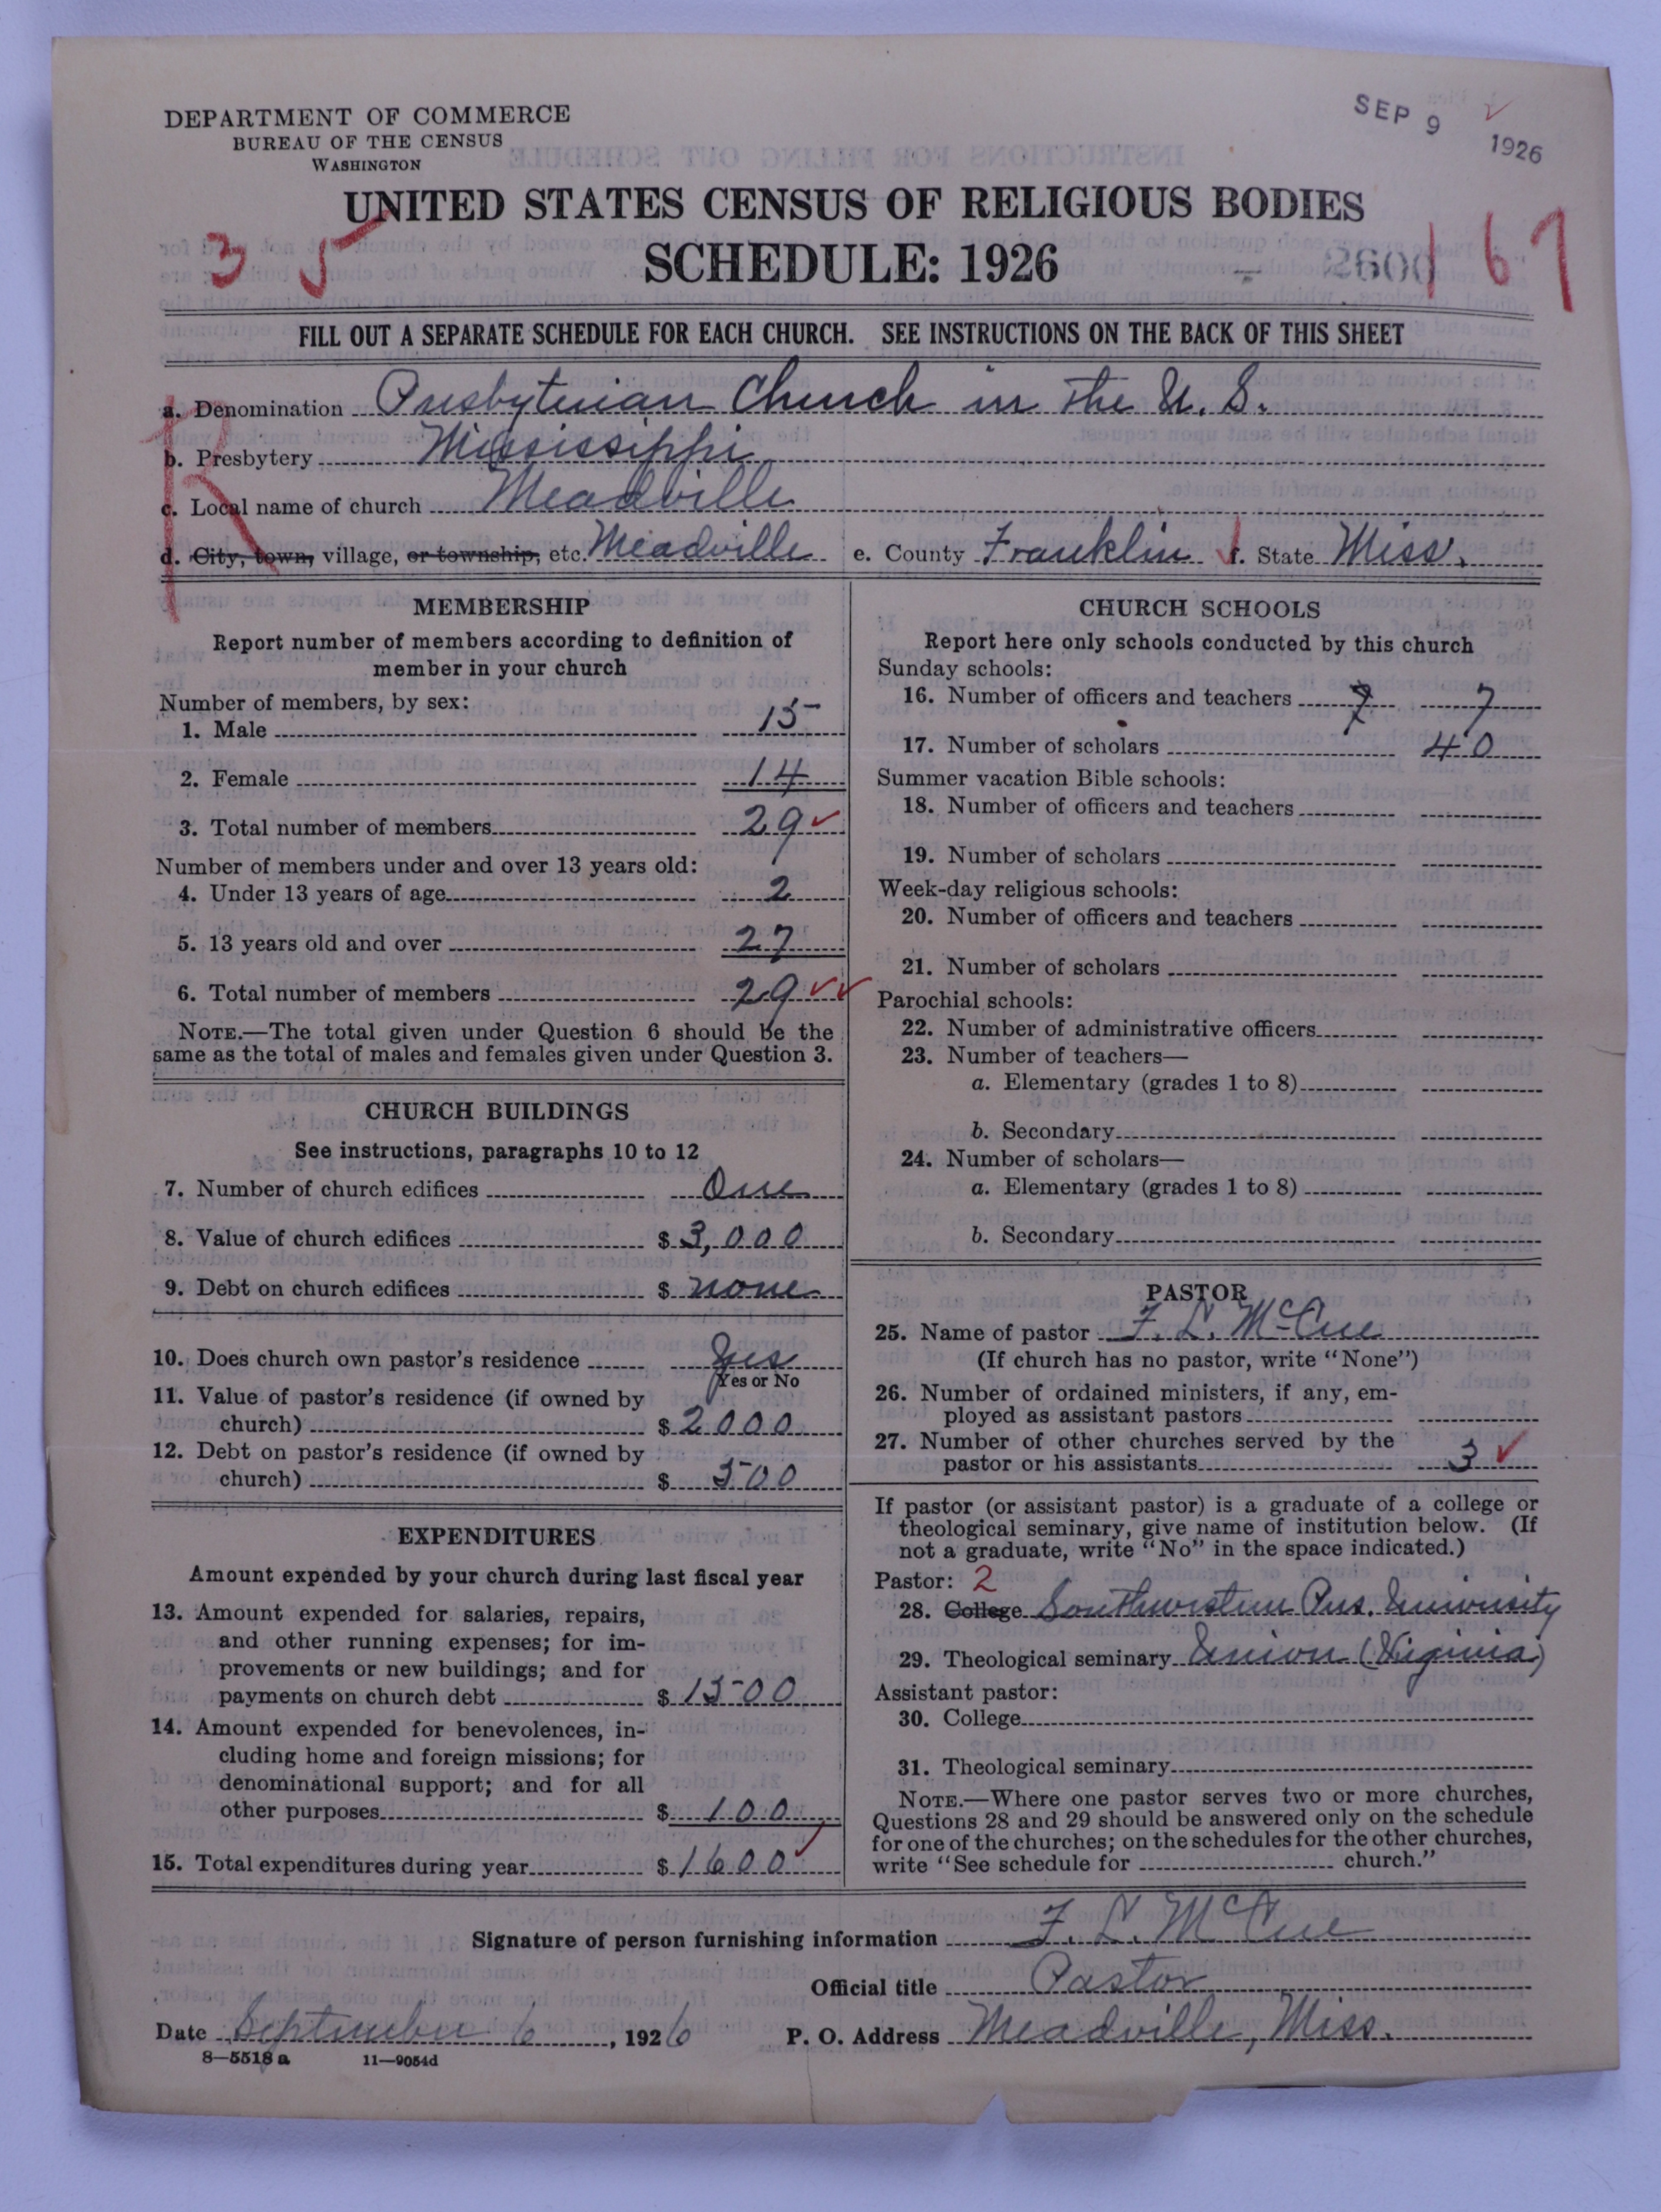 DEPARTMENT OF COMMERCE
BUREAU OF THE CENSUS
WASHINGTON
SEP 9 1926
UNITED STATES CENSUS OF RELIGIOUS BODIES
SCHEDULE: 1926
35
2600
167
FILL OUT A SEPARATE SCHEDULE FOR EACH CHURCH. SEE INSTRUCTIONS ON THE BACK OF THIS SHEET
R
a. Denomination Presbyterian Church in the U. S.
b. Presbytery Mississippi
c. Local name of church Meadville
d. City, town, village, or township, etc. Meadville e. County Franklin f. State Miss.
MEMBERSHIP
Report number of members according to definition of
member in your church
Number of members, by sex:
1. Male 15
2. Female 14
3. Total number of members 29
Number of members under and over 13 years old:
4. Under 13 years of age 2
5. 13 years old and over 27
6. Total number of members 29
NOTE.—The total given under Question 6 should be the
same as the total of males and females given under Question 3.
CHURCH BUILDINGS
See instructions, paragraphs 10 to 12
7. Number of church edifices One
8. Value of church edifices $ 3,000
9. Debt on church edifices $ none
10. Does church own pastor's residence Yes
Yes or No
11. Value of pastor's residence (if owned by
church) $ 2000
12. Debt on pastor's residence (if owned by
church) $ 500
EXPENDITURES
Amount expended by your church during last fiscal year
13. Amount expended for salaries, repairs,
and other running expenses; for im-
provements or new buildings; and for
payments on church debt $ 1500
14. Amount expended for benevolences, in-
cluding home and foreign missions; for
denominational support; and for all
other purposes $ 100
15. Total expenditures during year $ 1600
CHURCH SCHOOLS
Report here only schools conducted by this church
Sunday schools:
16. Number of officers and teachers 7 7
17. Number of scholars 40
Summer vacation Bible schools:
18. Number of officers and teachers
19. Number of scholars
Week-day religious schools:
20. Number of officers and teachers
21. Number of scholars
Parochial schools:
22. Number of administrative officers
23. Number of teachers—
a. Elementary (grades 1 to 8)
b. Secondary
24. Number of scholars—
a. Elementary (grades 1 to 8)
b. Secondary
PASTOR
25. Name of pastor F. L. McCue
(If church has no pastor, write "None")
26. Number of ordained ministers, if any, em-
ployed as assistant pastors
27. Number of other churches served by the
pastor or his assistants 3
If pastor (or assistant pastor) is a graduate of a college or
theological seminary, give name of institution below. (If
not a graduate, write "No" in the space indicated.)
Pastor: 2
28. College Southwestern Pres. University
29. Theological seminary Union (Virginia)
Assistant pastor:
30. College
31. Theological seminary
NOTE.—Where one pastor serves two or more churches,
Questions 28 and 29 should be answered only on the schedule
for one of the churches; on the schedules for the other churches,
write "See schedule for church."
Signature of person furnishing information F. L. McCue
Official title Pastor
Date September 6, 1926 P. O. Address Meadville, Miss.
8—5518 a 11—9054d